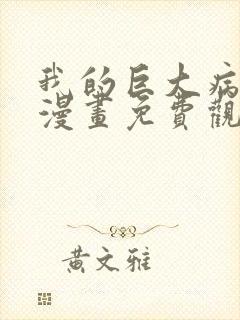 我的巨大病
漫畫免費觀
黃文雅